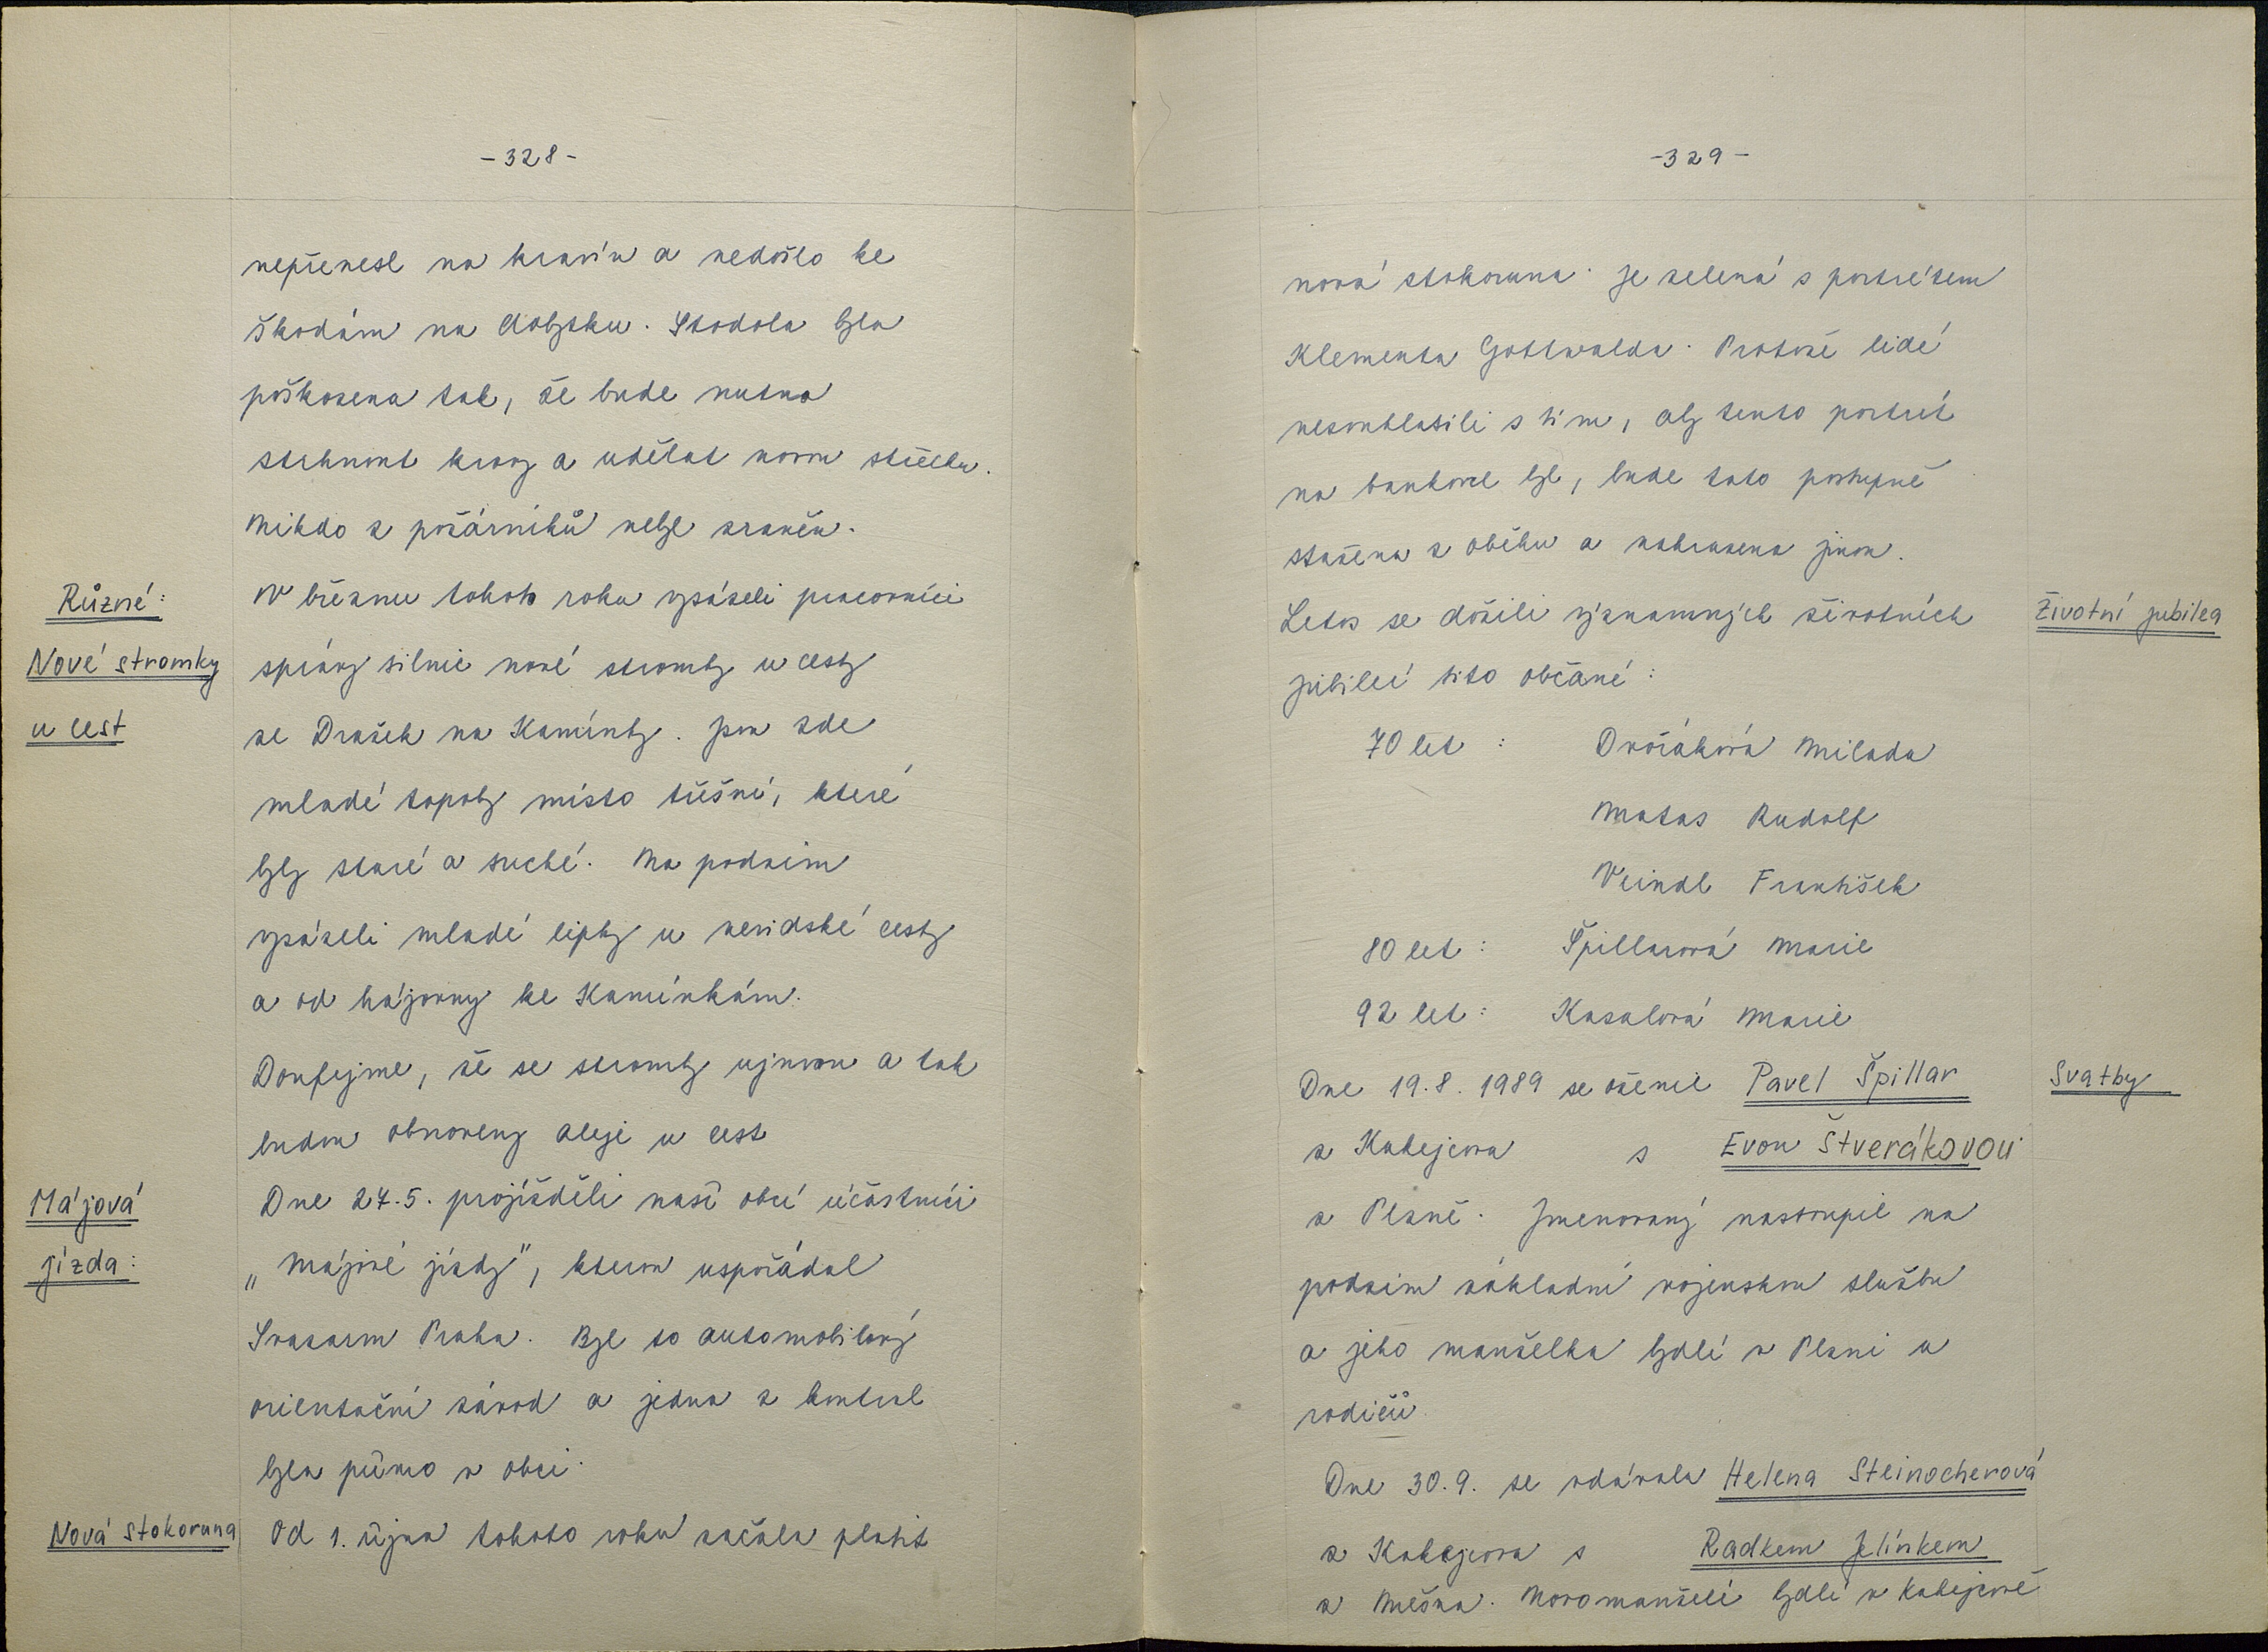 -328-
nepřenesl na kravín a nedošlo ke
škodám na dobytku. Stodola byla
poškozena tak, že bude nutno
strhnout krovy a udělat novou střechu.
Nikdo z požárníků nebyl zraněn.
Různé:
V březnu tohoto roku vysázeli pracovníci
Nové stromky
správy silnic nové stromky u cesty
u cest
ze Dražek na Kamínky. Jsou zde
mladé topoly místo třešní, které
byly staré a suché. Na podzim
vysázeli mladé lipky u nezvidské cesty
a od hájovny ke Kamínkám.
Doufejme, že se stromky ujmou a tak
budou obnoveny aleje u cest
Májová
Dne 27.5. projížděli naší obcí účastníci
jízda:
„Májové jízdy", kterou uspořádal
Svazarm Praha. Byl to automobilový
orientační závod a jedna z kontrol
byla přímo v obci.
Nová stokoruna
Od 1. října tohoto roku začala platit
-329-
nová stokoruna. Je zelená s portrétem
Klementa Gottwalda. Protože lidé
nesouhlasili s tím, aby tento portrét
na bankovce byl, bude tato postupně
stažena z oběhu a nahrazena jinou.
Letos se dožili významných životních
Životní jubilea
jubileí tito občané:
70 let : Dvořáková Milada
Matas Rudolf
Veindl František
80 let : Špillarová Marie
92 let : Kasalová Marie
Dne 19.8. 1989 se oženil Pavel Špillar
Svatby
z Kokejcova s Evou Štverákovou
z Plzně. Jmenovaný nastoupil na
podzim základní vojenskou službu
a jeho manželka bydlí v Plzni u
rodičů.
Dne 30.9. se vdávala Helena Steinocherová
s Radkem Jelínkem
Novomanželé bydlí v